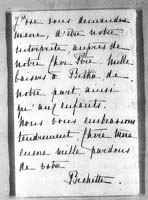 J'ose vous demander
encore, d'être notre
interprète auprès de
notre cher Père. Mille
baisers à Bertha de
notre part, ainsi
qu'aux enfants.
Nous vous embrassons
tendrement chère Mère
encore mille pardons
de votre
Bichette.